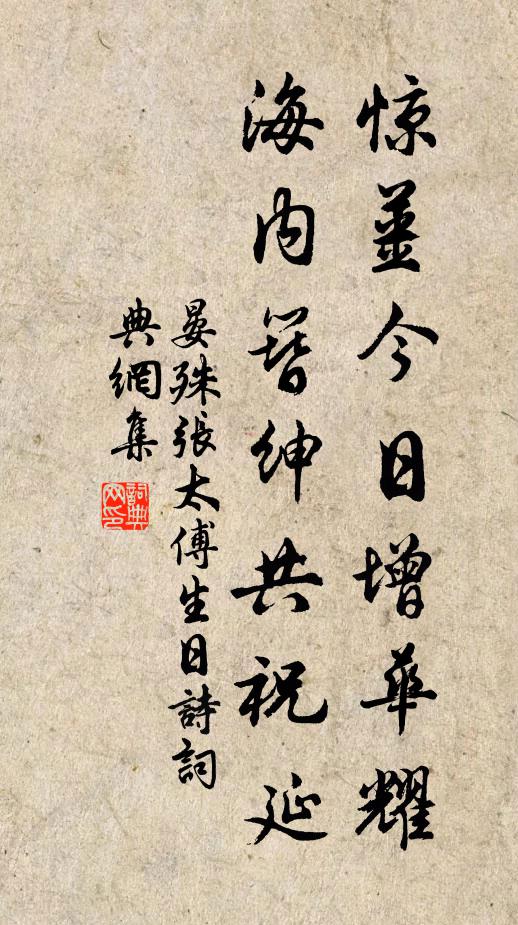 惊薑今日增華耀
海内簪紳共祝延
晏殊張太傅生日詩詞
典網集
詞典
网印